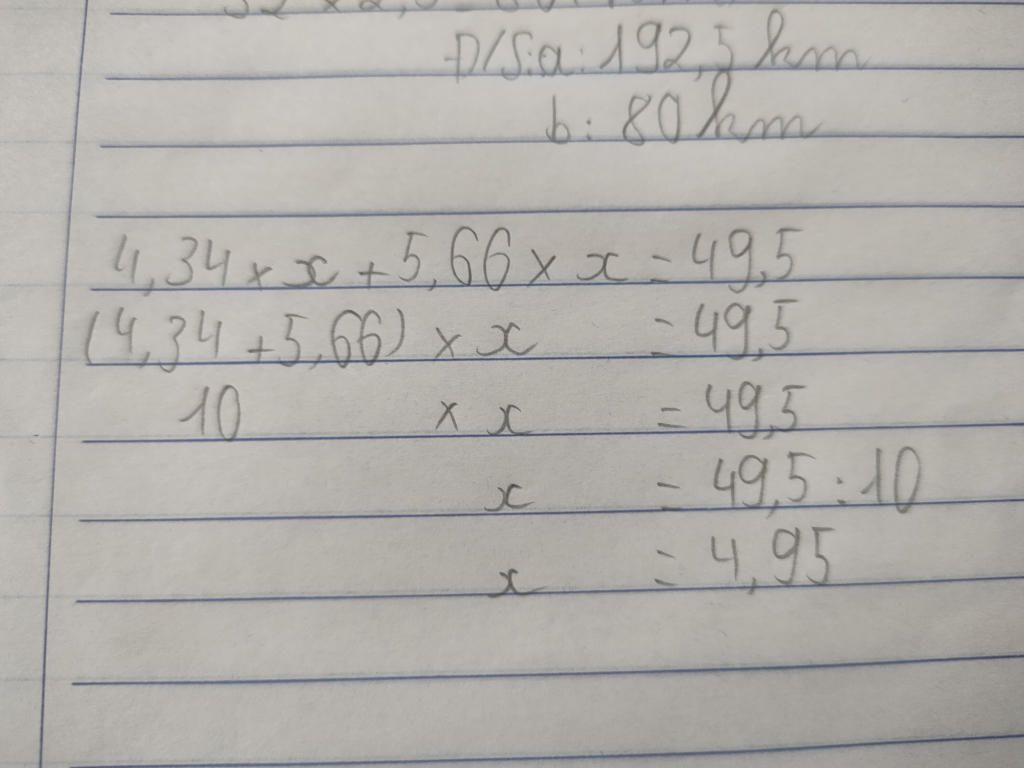 Đ/S:a: 192,5 km
b: 80 km
4,34 × x + 5,66 × x = 49,5
(4,34 + 5,66) × x = 49,5
10 × x = 49,5
x = 49,5 : 10
x = 4,95